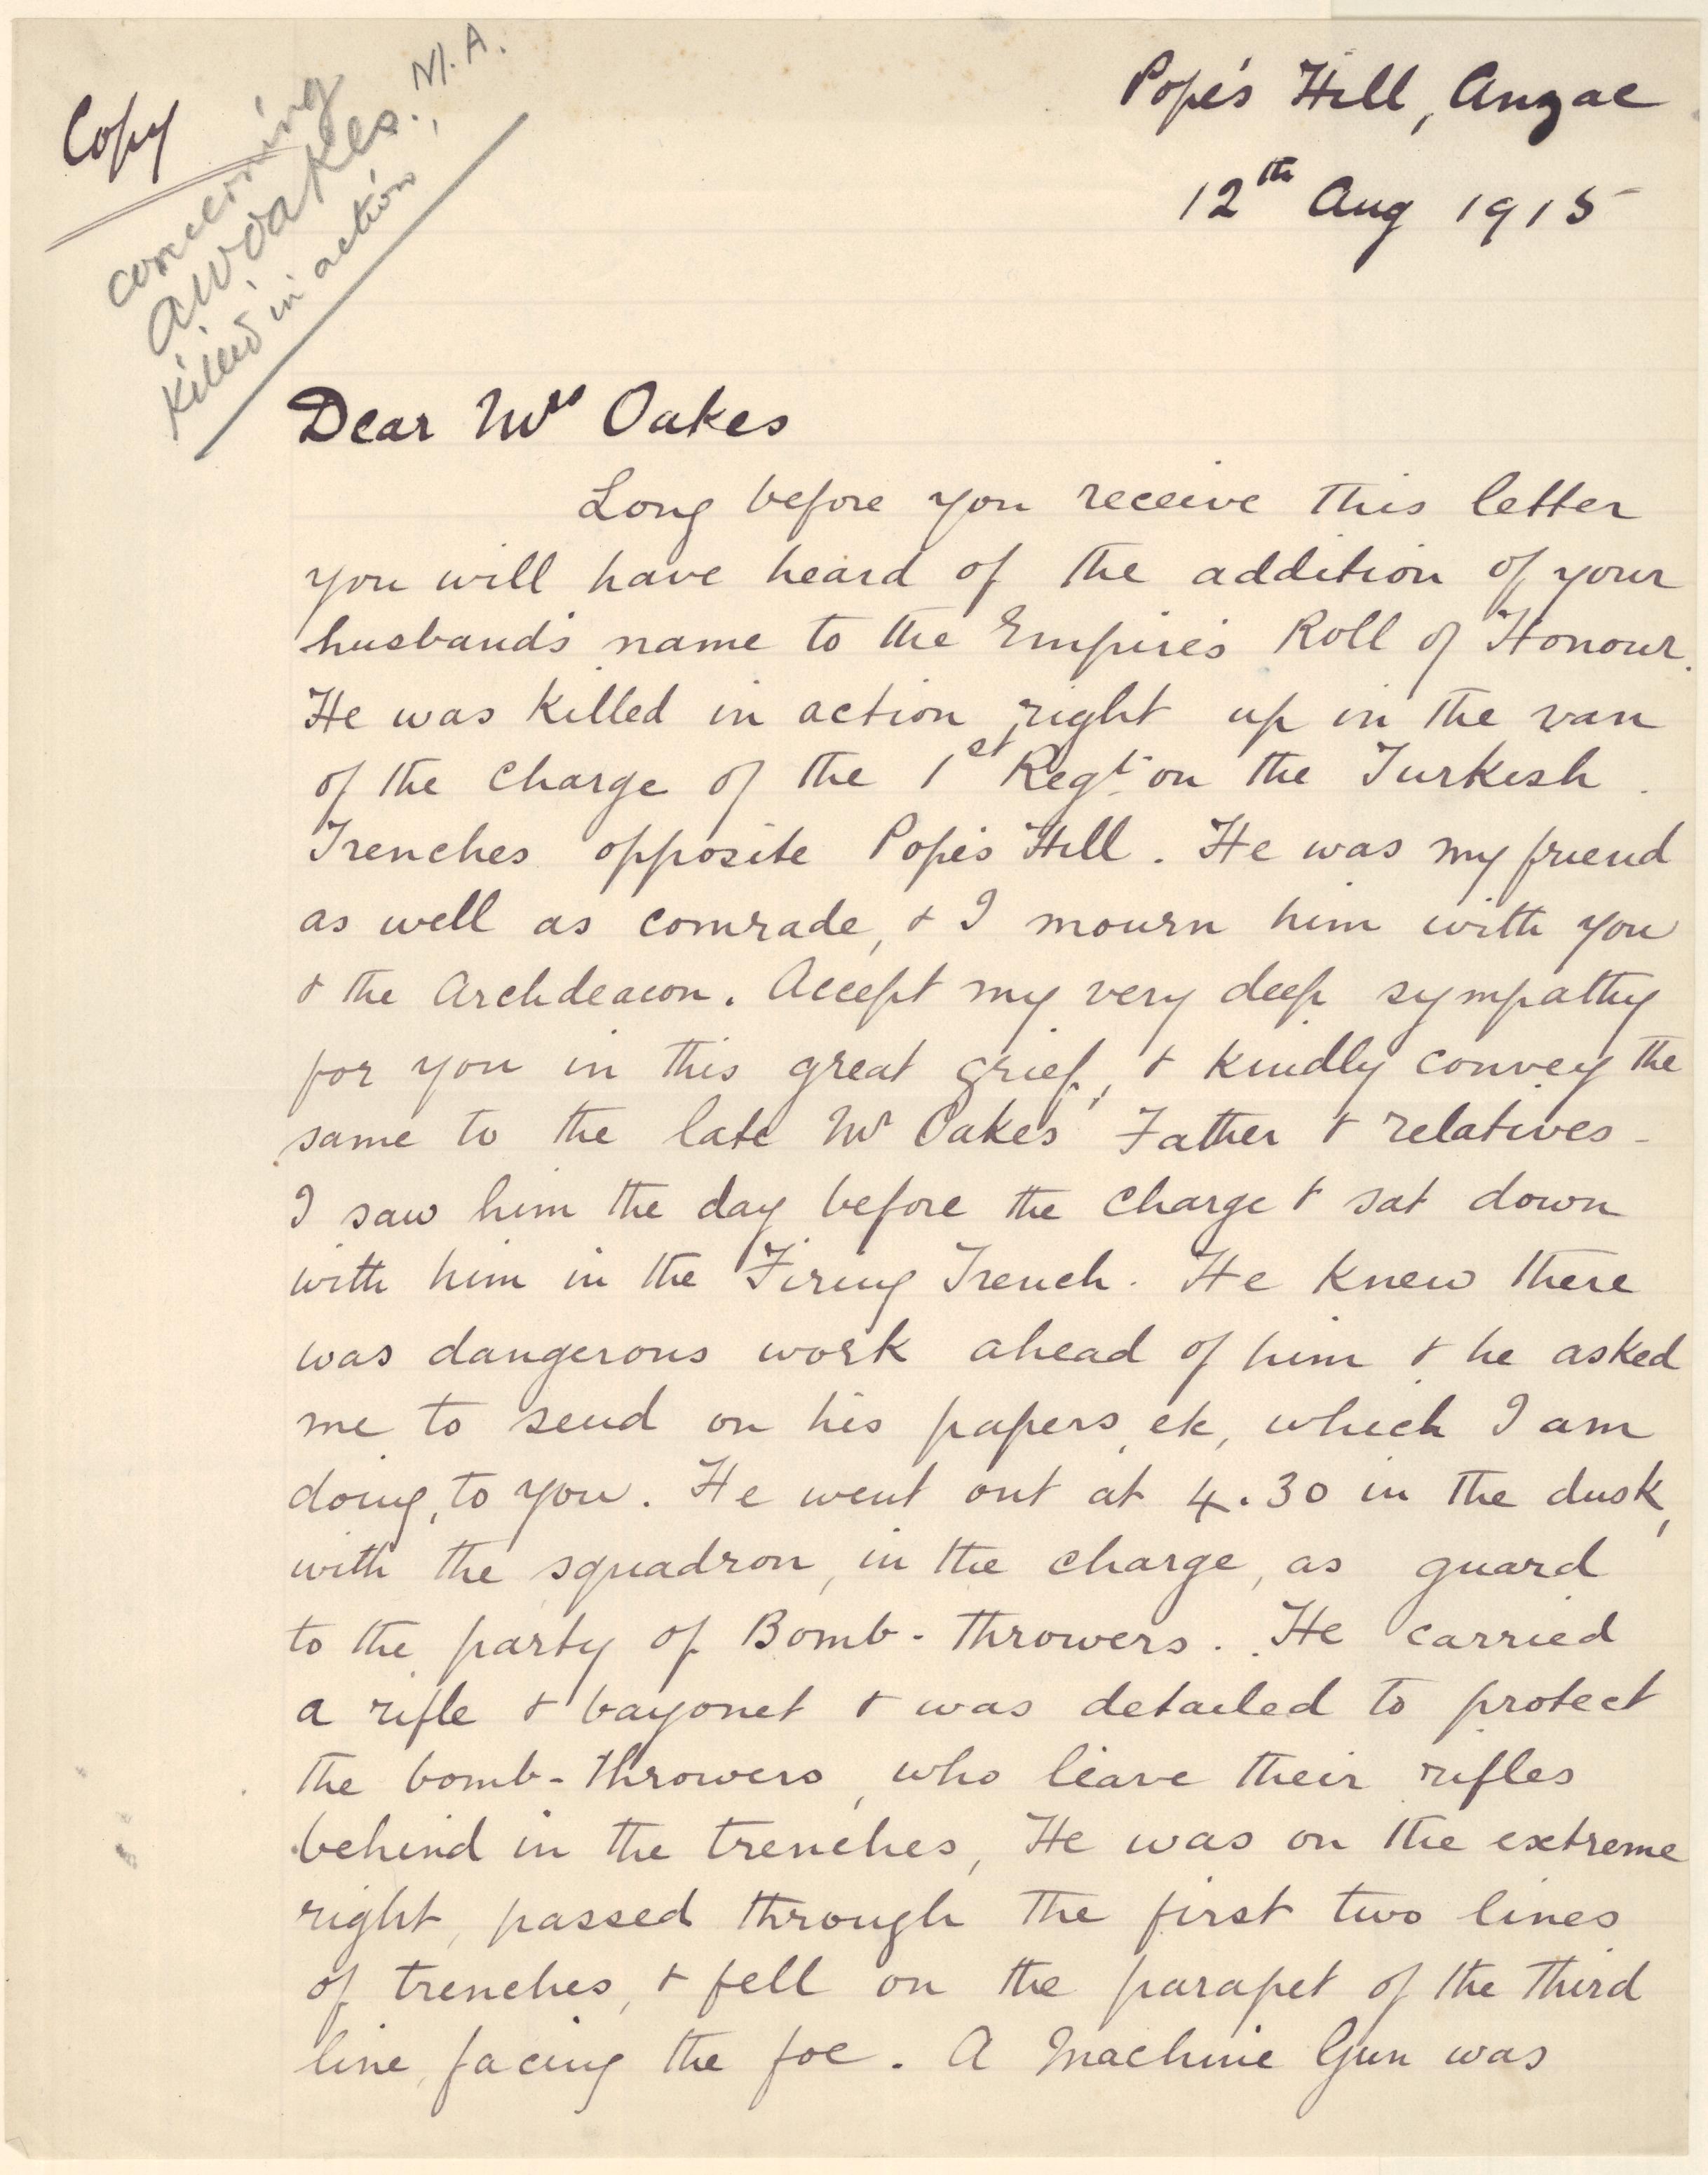 Copy
concerning
A.W. Oakes., M.A.
Killed in action
Pope's Hill, Anzac
12th Aug 1915
Dear Mrs Oakes
Long before you receive this letter
you will have heard of the addition of your
husband's name to the Empire's Roll of Honour.
He was killed in action right up in the van
of the charge of the 1st Regt. on the Turkish
Trenches opposite Pope's Hill. He was my friend
as well as comrade, & I mourn him with you
& the Archdeacon. Accept my very deep sympathy
for you in this great grief, & kindly convey the
same to the late Mr Oakes' Father & relatives -
I saw him the day before the charge & sat down
with him in the Firing Trench. He knew there
was dangerous work ahead of him & he asked
me to send on his papers, etc, which I am
doing, to you. He went out at 4.30 in the dusk,
with the squadron, in the charge, as guard
to the party of Bomb-throwers. He carried
a rifle & bayonet & was detailed to protect
the bomb-throwers, who leave their rifles
behind in the trenches, He was on the extreme
right, passed through the first two lines
of trenches, & fell on the parapet of the third
line, facing the foe. A Machine Gun was